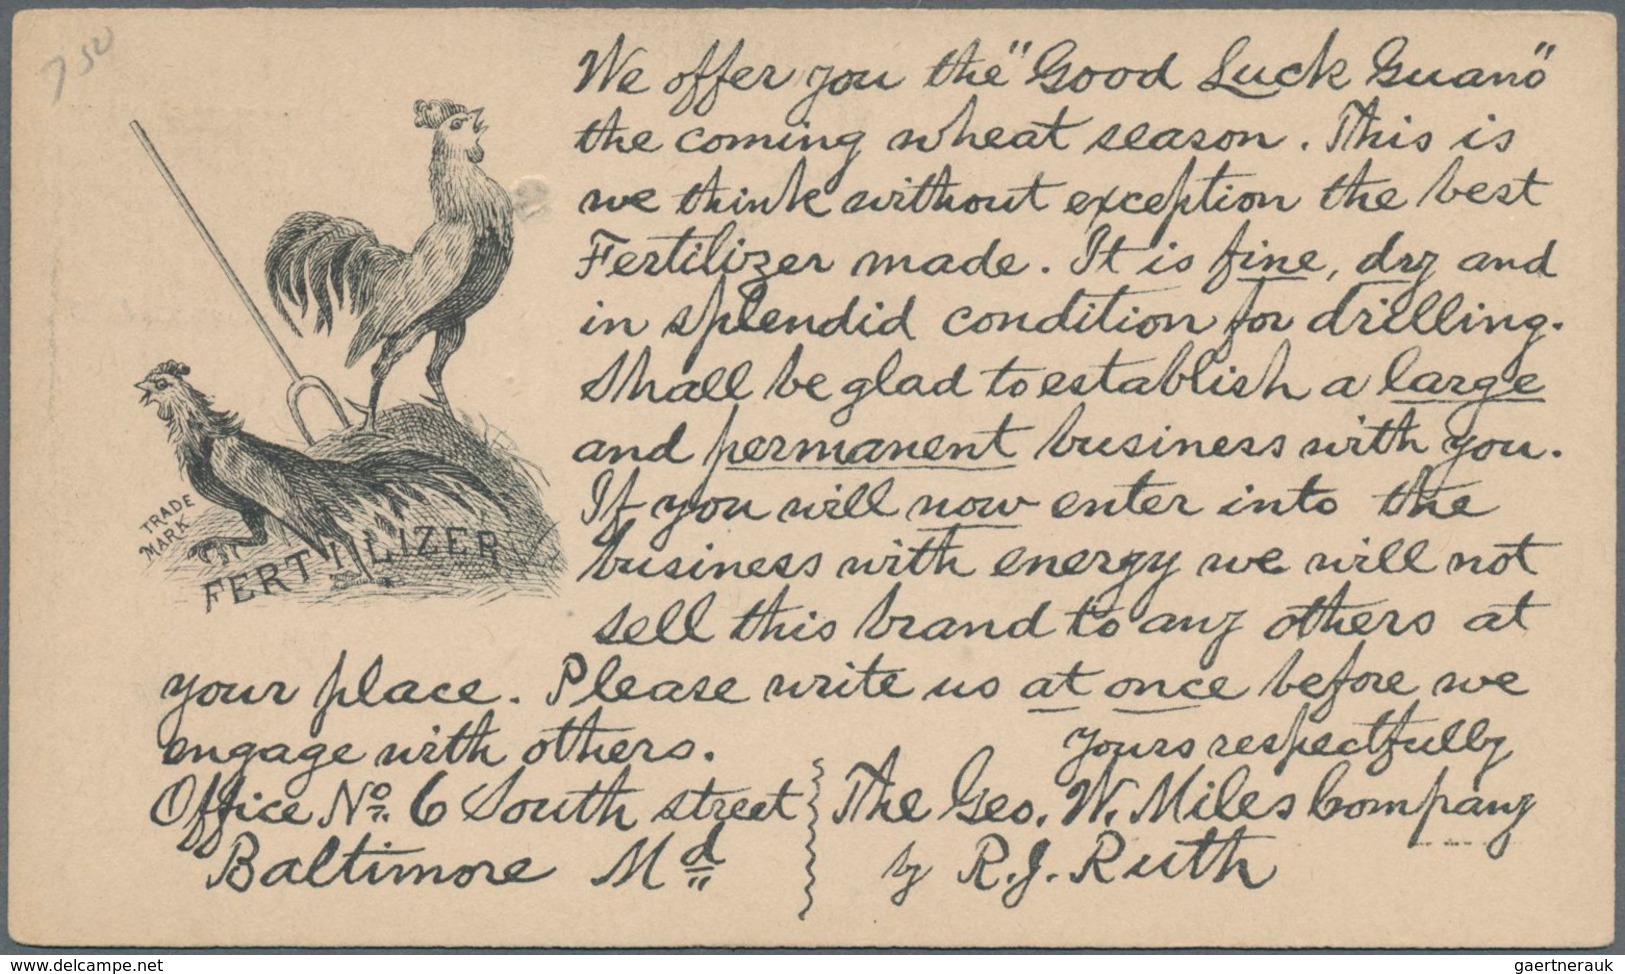 7 50
We offer you the "Good Luck Guano"
the coming wheat season. This is
we think without exception the best
Fertilizer made. It is fine, dry and
in splendid condition for drilling.
Shall be glad to establish a large
and permanent business with you.
If you will now enter into the
business with energy we will not
sell this brand to any others at
your place. Please write us at once before we
engage with others.
Yours respectfully
Office No. 6 South street
Baltimore Md
The Geo. W. Miles Company
by R. J. Ruth
TRADE
MARK
FERTILIZER
www.delcampe.net
gaertnerauk